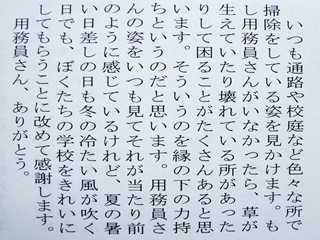 いつも通路や校庭など色々な所で
掃除をしている姿を見かけます。も
し用務員さんがいなかったら、草が
生えていたり壊れている所があった
りして困ることがたくさんあると思
います。そういうのを縁の下の力持
ちというのだと思います。用務員さ
んの姿をいつも見てそれが当たり前
のように感じているけれど、夏の暑
い日差しの日も冬の冷たい風が吹く
日でも、ぼくたちの学校をきれいに
してもらうことに改めて感謝します。
　用務員さん、ありがとう。